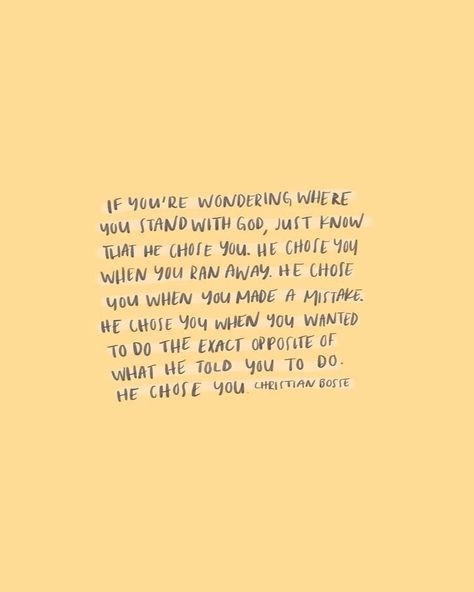 IF YOU'RE WONDERING WHERE
YOU STAND WITH GOD, JUST KNOW
THAT HE CHOSE YOU. HE CHOSE YOU
WHEN YOU RAN AWAY. HE CHOSE
YOU WHEN YOU MADE A MISTAKE.
HE CHOSE YOU WHEN YOU WANTED
TO DO THE EXACT OPPOSITE OF
WHAT HE TOLD YOU TO DO.
HE CHOSE YOU. CHRISTIAN BOSSE